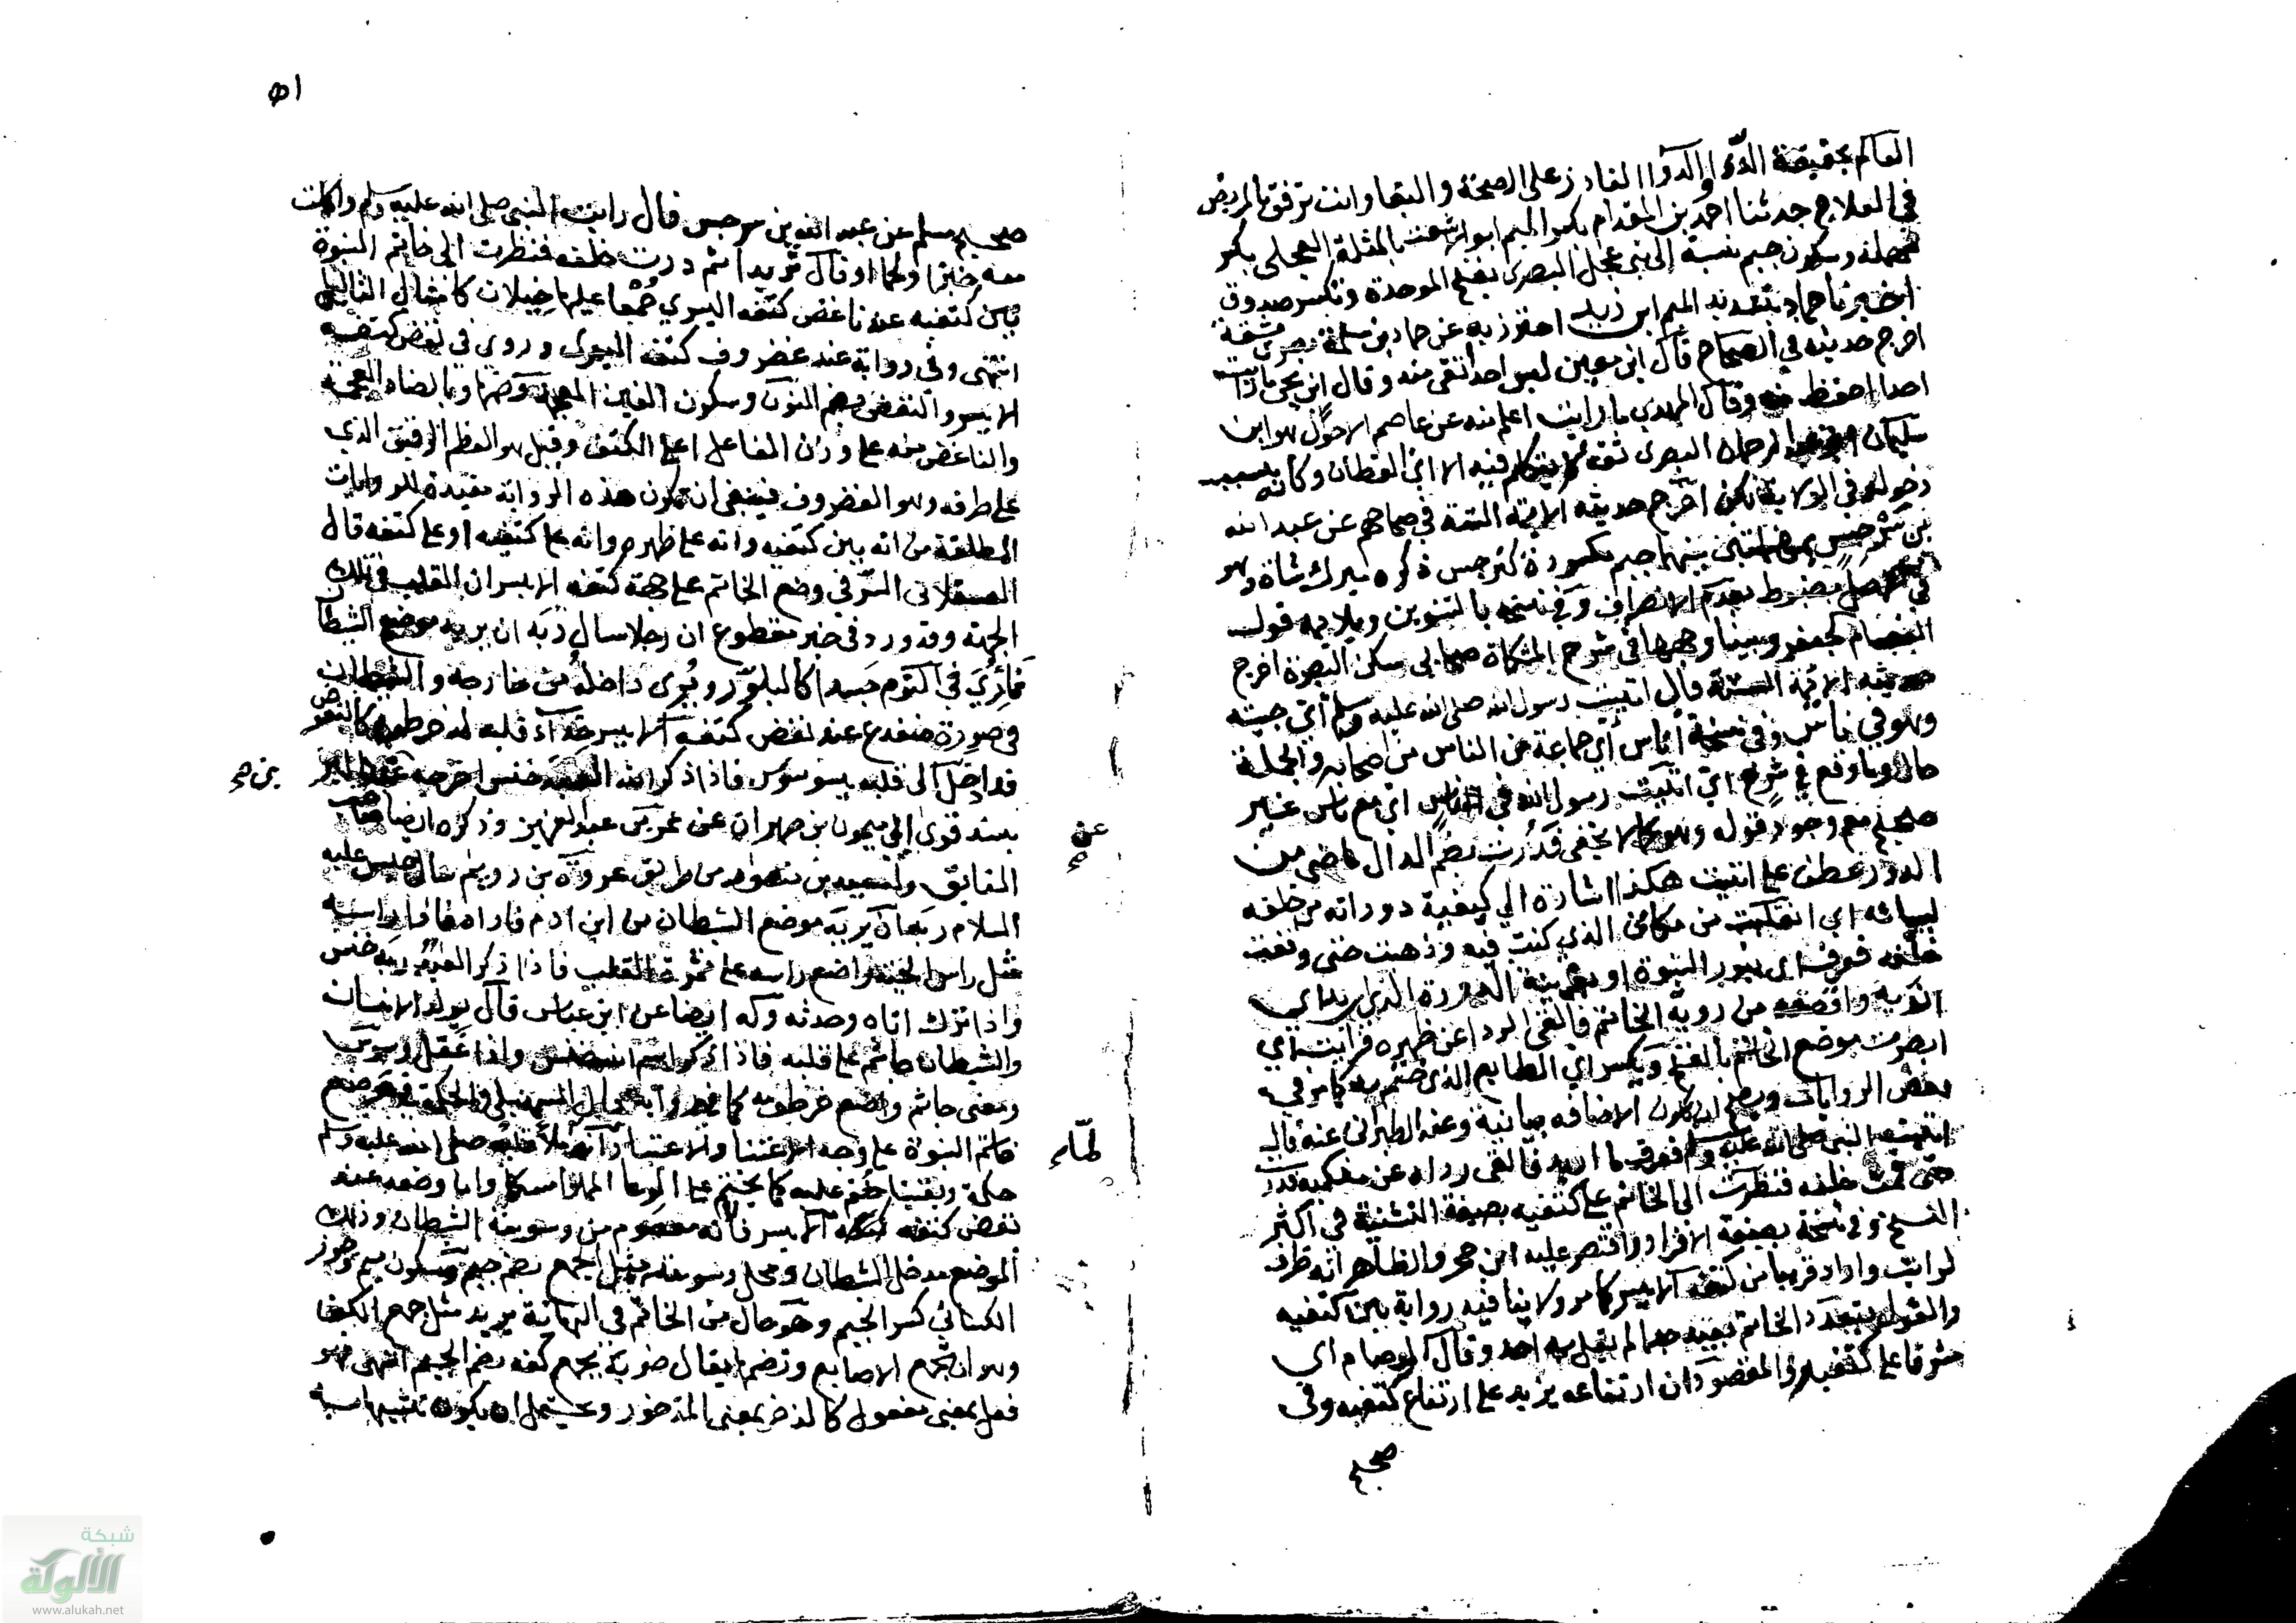 العالم بحقيقة الداء والدواء القادر على الصحة والبقا وانت ترفق بالمريض
في العلاج حدثنا احمد بن المقدام بكسر الميم ابو الاشعث بالمثلثة العجلي بكسر
مهملة وسكون جيم نسبة الى بني عجل البصرى بفتح الموحدة وتكسر صدوق
اخبرنا حماد بن زيد احترز به عن حماد بن سلمة بصرى ثقة
اخرج حديثه في الصحاح قال ابن معين ليس احد اتقن منه وقال ابن يحيى ما رايت
احدا احفظ منه وقال المهدي ما رايت اعلم منه عن عاصم الاحول هو ابن
سليمان ابو عبد الرحمان البصرى ثقة لم يتكلم فيه الا ابن القطان وكانه بسبب
دخوله في الولاية لكن اخرج حديثه الايمة الستة في صحاحهم عن عبد الله
بن سرجس بينهما جيم مكسورة كنرجس ذكره ميرك شاه وهو
في مضبوط بعدم الانصراف وفي نسخة بالتنوين ويلايمه قول
العصام كجعفر وبينا وجهها في شرح المشكاة صحابي سكن البصرة اخرج
حديثه الايمة الستة قال اتيت رسول الله صلى الله عليه وسلم اي جيته
وهو في ناس وفي نسخة اناس اي جماعة من الناس من اصحابه والجملة
حال وما وقع في شرح اي اتيت رسول الله في الناس اي مع ناس غير
صحيح مع وجود قوله وهو كما لا يخفى فدرت بضم الدال ماضي من
الدور عطف على اتيت هكذا اشارة الي كيفية دورانه من خلفه
لبيانه اي انقلبت من مكاني الذي كنت فيه وذهبت حتى وقفت
خلفه فعرف اي بنور النبوة او بقرينة الدورة الذي اريد اي
الذي اقصده من روية الخاتم فالقى الردا عن ظهره فرايت اي
ابصرت موضع الخاتم بالفتح ويكسر اي الطابع الذي ختم به كما مر في
بعض الروايات ويصح ان يكون الاضافه بيانية وعند الطبراني عنه قال
اتيت النبي صلى الله عليه وسلم فعرف ما اريد فالقى رداه عن منكبيه فدرت
حتى قمت خلفه فنظرت الى الخاتم على كتفيه بصيغة التثنية في اكثر
النسخ وفي نسخة بصيغة الافراد واقتصر عليه ابن حجر والظاهر انه ظرف
لرايت واراد قريبا من كتفه الايسر كما مر ولا ينافيه رواية بين كتفيه
والقول بتعدد الخاتم بعيد جدا لم يقل به احد وقال العصام اي
مشرفا على كتفيه والمقصود ان ارتفاعه يزيد على ارتفاع كتفيه وفي
صحيح
٥١
صحيح مسلم عن عبد الله بن سرجس قال رايت النبي صلى الله عليه وسلم واكلت
معه خبزا ولحما او قال ثريدا ثم درت خلفه فنظرت الى خاتم النبوة
بين كتفيه عند ناغض كتفه اليسري جمعا عليها خيلان كامثال الثاليل
انتهى وفي رواية عند غضروف كتفه اليسرى وروي في نغض كتفه
الايسر والنغض بضم النون وسكون الغين المعجمة وضمها وبالضاد المعجمة
والناغض منه على وزن الفاعل اعلى الكتف وقيل هو العظم الرقيق الذي
على طرفه وهو الغضروف فينبغي ان تكون هذه الرواية مقيدة للروايات
المطلقة من انه بين كتفيه وانه على ظهره وانه على كتفيه او على كتفه قال
العسقلاني السر في وضع الخاتم على جهة كتفه الايسر ان القلب في تلك
الجهة وقد ورد في خبر مقطوع ان رجلا سال ربه ان يريه موضع الشيطان
فاري في النوم جسدا كالبلور ويرى داخله من خارجه والشيطان
في صورة ضفدع عند نغض كتفه الايسر حذاء قلبه له خرطوم كالبعوض
قد ادخل الى قلبه يوسوس فاذا ذكر الله العبد خنس اخرجه
بن صح
بسند قوى الي ميمون بن مهران عن عمر بن عبد العزيز وذكره ايضا صاحب
عن
الفايق ولسعيد بن منصور من طريق عروة بن رويم سال عليه
السلام ربه ان يريه موضع الشيطان من ابن ادم فاراه فاذا راسه
مثل راس الحية واضع راسه على ثمرة القلب فاذا ذكر العبد ربه خنس
واذا ترك اتاه وحدثه وله ايضا عن ابن عباس قال يولد الانسان
والشيطان جاثم على قلبه فاذا ذكر اسم الله خنس واذا غفل وسوس
ومعنى جاثم واضع خرطومه كما في رواية قال السهيلي والحكمة في وضع
خاتم النبوة على وجه الاعتنا والاعتبار انه ملأ قلبه صلى الله عليه وسلم
لما
حكمة ويقينا ختم عليه كما يختم على الوعا المملو مسكا واما وضعه عند
نغض كتفه الايسر فلانه معصوم من وسوسة الشيطان وذلك
الموضع مدخل الشيطان ومحل وسوسته مثل الجمع بضم جيم وسكون ميم وجوز
الكسائي كسر الجيم وهو حال من الخاتم في النهاية يريد مثل جمع الكف
وهو ان تجمع الاصابع وتضمها يقال ضربه بجمع كفه بضم الجيم انتهى فهو
فعل بمعنى مفعول كالذخر بمعنى المذخور ويحتمل ان يكون تشبيها به
شبكة
الألوكة
www.alukah.net